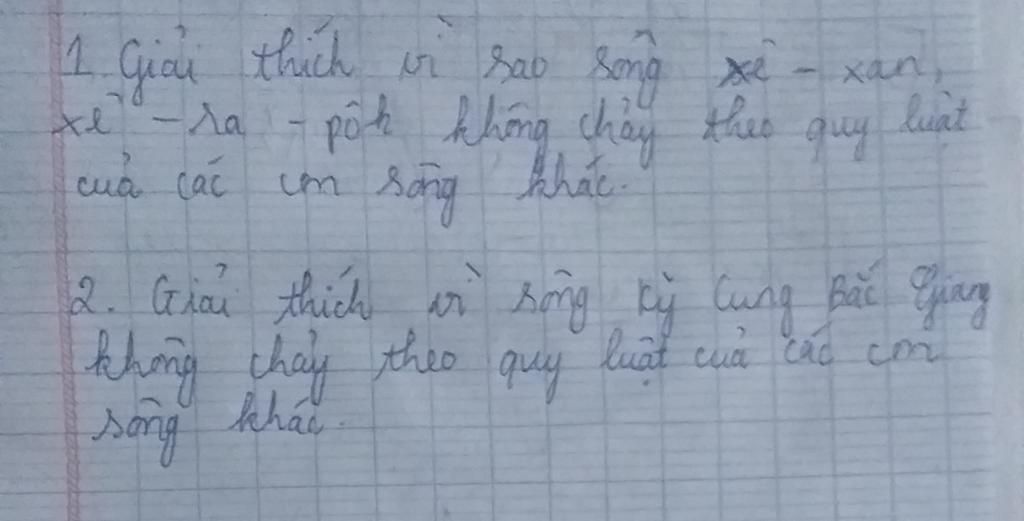 1. Giải thích vì sao sông xê - xan,
xê - ra - pôk không chảy theo quy luật
của các con sông khác.
2. Giải thích vì sông Kỳ Cung Bắc Giang
không chảy theo quy luật của các con
sông khác.